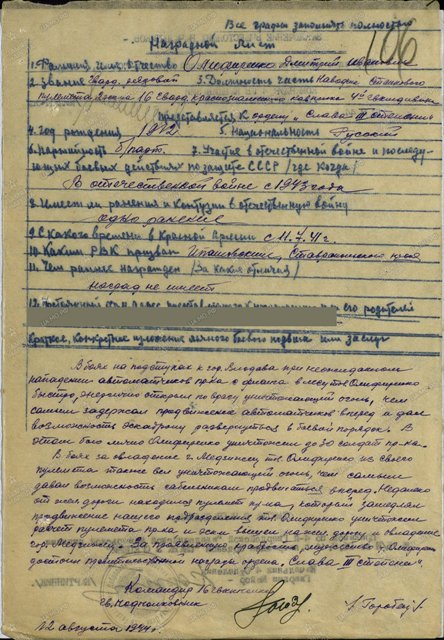 Все графы заполнять полностью
Наградной лист
106
1. Фамилия имя отчество Олифиренко Дмитрий Иванович
2. Звание гвард. рядовой 3. Должность часть Наводчик станкового
пулемета 2 эск-на 16 гвард. краснознаменного кавполка 4й гв.кавдивизии
представляется к ордену „Слава III степени"
4. год рождения 1912 5. Национальность Русский
6. партийность б/парт. 7. Участие в отечественной войне и последу-
ющих боевых действиях по защите СССР /где когда/
В отечественной войне с 1943 года
8. Имеет ли ранения и контузии в отечественную войну
одно ранение
9. С какого времени в Красной Армии с 11.7.41 г.
10. Каким РВК призван Ставропольского края
11. Чем раннее награжден /за какие отличия/
наград не имеет
12. Постоянный его родителей
Краткое, конкретное изложение личного боевого подвига или заслуг
В боях на подступах к гор. Влодава при неожиданном
нападении автоматчиков пр-ка с фланга в лесу тов. Олифиренко
быстро, энергично открыл по врагу уничтожающий огонь, чем
самым задержал продвижение автоматчиков вперед и дал
возможность эскадрону развернуться в боевой порядок. В
этом бою лично Олифиренко уничтожил до 30 солдат пр-ка.
В боях за овладение г. Мендзижец тов. Олифиренко из своего
пулемета также вел уничтожающий огонь, чем самым
давал возможность сабельникам продвигаться вперед. Недалеко
от ж.д. дороги находился пулемет пр-ка, который замедлял
продвижение нашего подразделения тов. Олифиренко уничтожил
расчет пулемета пр-ка и этим дорогу на овладение
гор. Мендзижец. За проявленную храбрость, мужество т. Олифиренко
достоин правительственной награды ордена „Слава III степени".
Командир 16 гв.кавполка
гв. подполковник
22 августа 1944 г.